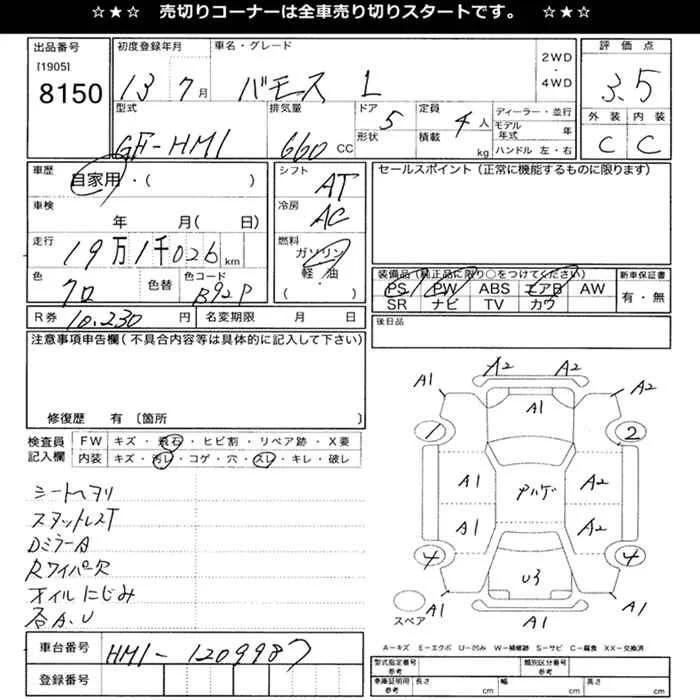 ☆★☆ 売切りコーナーは全車売り切りスタートです。 ☆★☆
出品番号
[1905]
8150
初度登録年月
13 7月
車名・グレード
バモス L
2WD
・
4WD
評価点
3.5
外装 内装
C C
型式
GF-HM1
排気量
660 CC
ドア
形状
5
定員
4人
積載
kg
ディーラー・並行
モデル
年式
年
ハンドル 左・右
車歴
自家用・( )
シフト
AT
セールスポイント(正常に機能するものに限ります)
車検
年 月( 日)
冷房
AC
走行
19万1千026km
燃料
ガソリン
軽・油
( )
色
クロ
色替
色コード
B92P
装備品(純正品に限り○をつけてください)
PS PW ABS エアB AW
SR ナビ TV カワ
新車保証書
有・無
R券 10,230円
名変期限 月 日
後日品
注意事項申告欄(不具合内容等は具体的に記入して下さい)
修復歴 有 〔箇所 〕
検査員
記入欄
FW キズ・飛石・ヒビ割・リペア跡・X要
内装 キズ・汚レ・コゲ・穴・スレ・キレ・破レ
シートヘタリ
スタットレスT
DミラーA
Rワイパー欠
オイルにじみ
各A.U
A1 A2 A2 A2
A1
1 2
A1 A2
ハゲ
A1 A2
4 4
U3
A1 A1 A1
スペア
A-キズ E-エクボ U-凹み W-補修跡 S-サビ C-腐食 XX-交換済
車台番号
HM1-1209987
登録番号
型式指定番号
参考
類別区分番号
参考
車庫証明用
参考
長さ cm 幅 cm 高さ cm